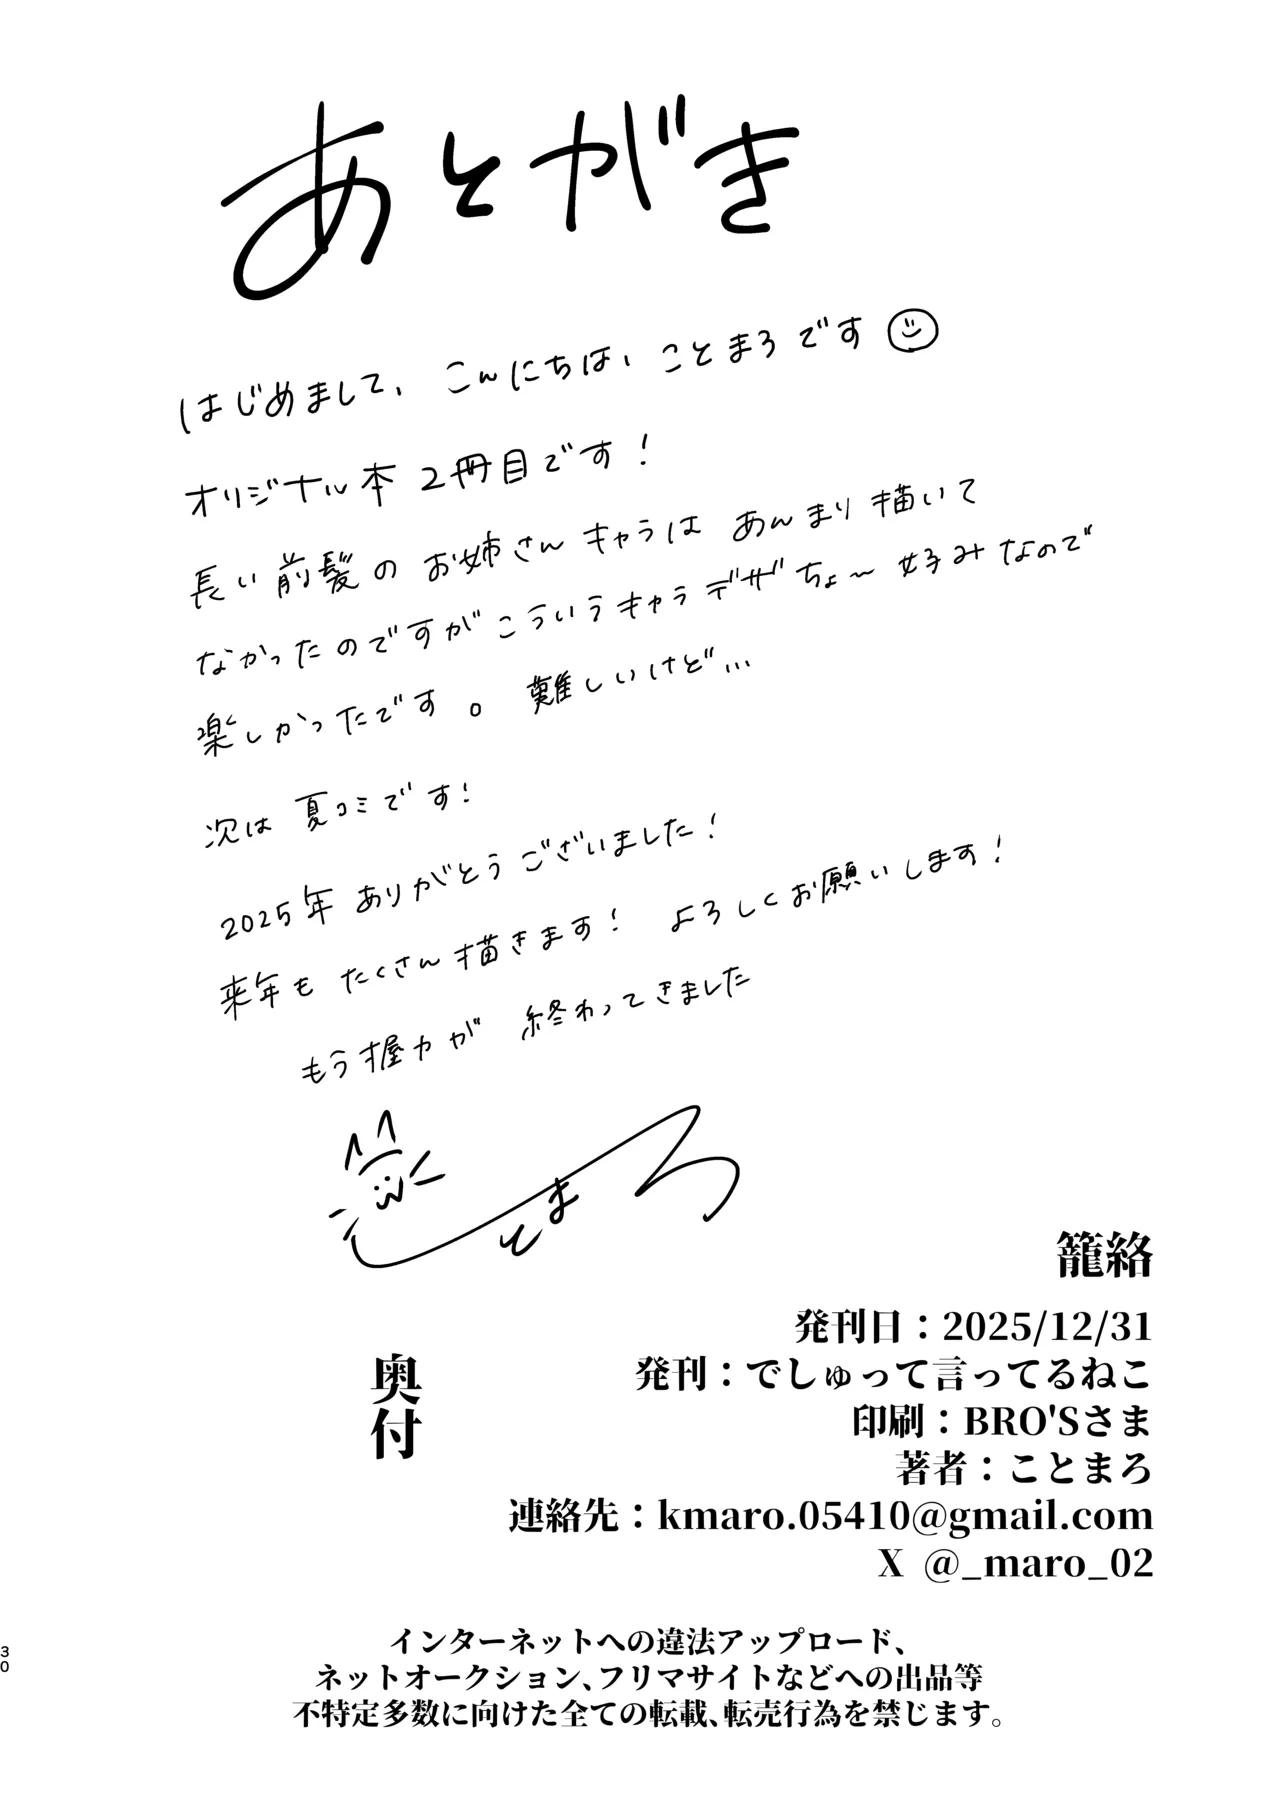 あとがき
はじめまして、こんにちは、ことまろです
オリジナル本2冊目です!
長い前髪のお姉さんキャラはあんまり描いて
なかったのですがこういうキャラデザちょ〜好みなので
楽しかったです。難しいけど…
次は夏コミです!
2025年ありがとうございました!
来年もたくさん描きます! よろしくお願いします!
もう握力が終わってきました
ことまろ
籠絡
奥付
発刊日：2025/12/31
発刊：でしゅって言ってるねこ
印刷：BRO'Sさま
著者：ことまろ
連絡先：kmaro.05410@gmail.com
X @_maro_02
インターネットへの違法アップロード、
ネットオークション、フリマサイトなどへの出品等
不特定多数に向けた全ての転載、転売行為を禁じます。
30